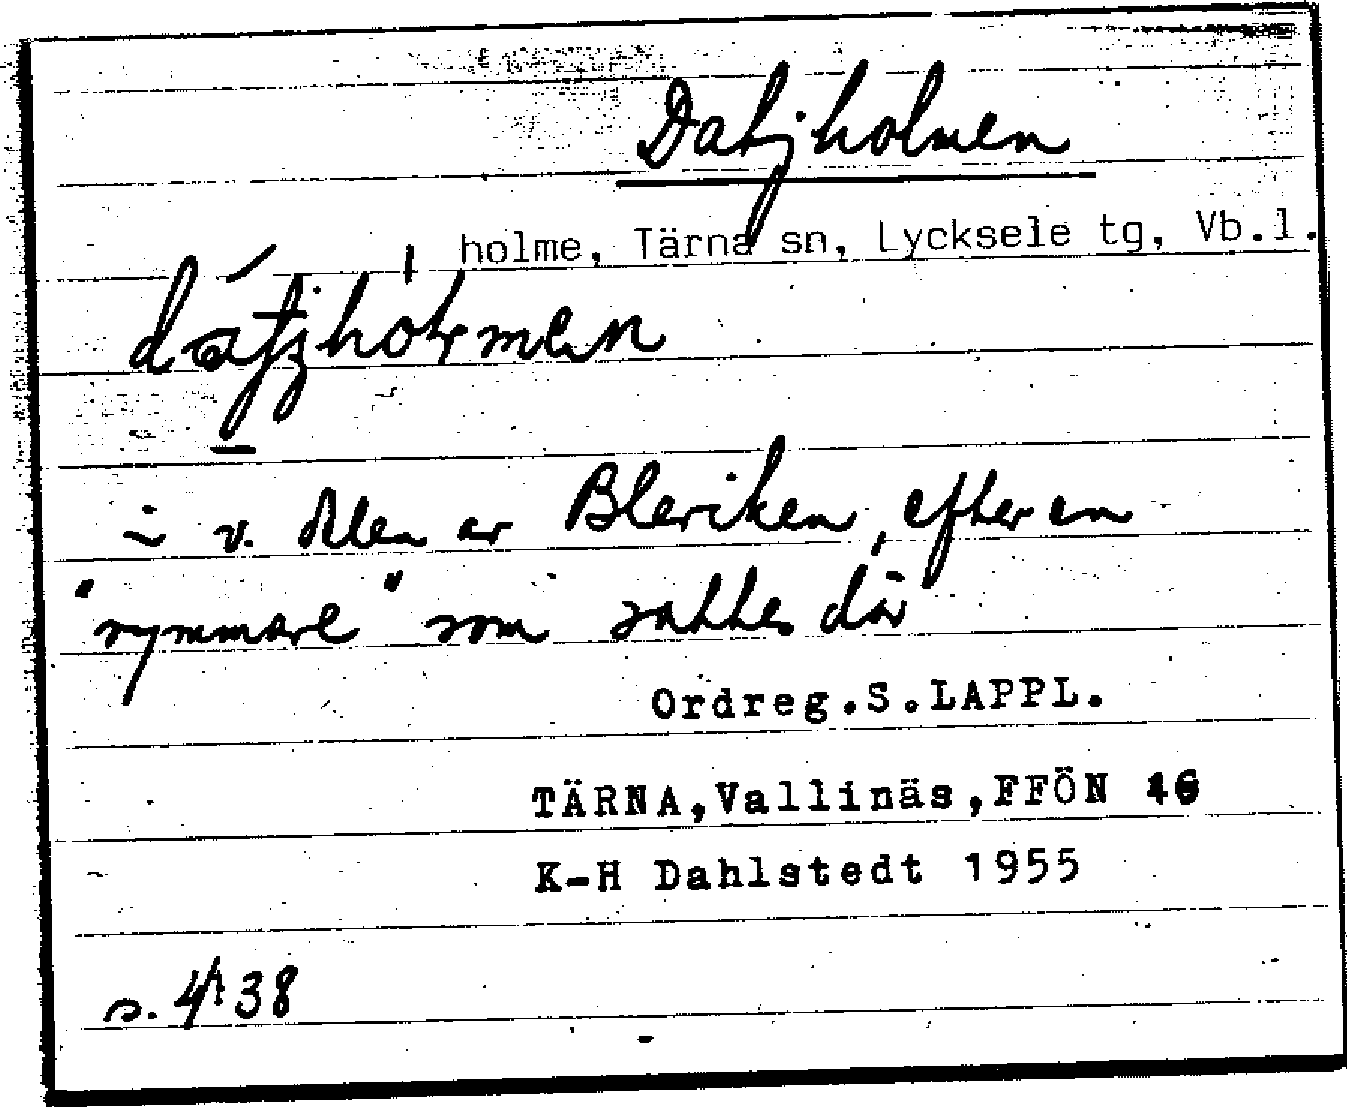 Datjholmen
holme, Tärna sn, Lycksele tg, Vb.l.
i v. delen av Bleriken, efter en
"rymmare" som sattes där
Ordreg.S.LAPPL.
TÄRNA,Vallinäs,FFÖN 46
K-H Dahlstedt 1955
s. 438